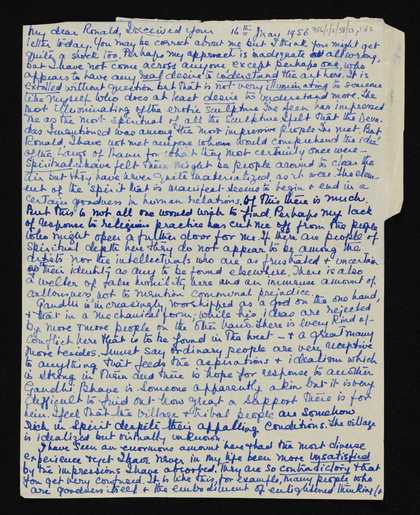 16th May 1956
My dear Ronald, I received your
letter today. You may be correct about me but I think you might get
quite a shock too. Perhaps my approach is inadequate or all wrong.
but I have not come across anyone except perhaps one who
appears to have any real desire to understand the art here. It is
extolled without question but that is not very illuminating to someone
like myself who does at least desire to understand more. The
most illuminating of the erotic sculpture I've seen has impressed
me as the most spiritual of all the sculpture & felt that the Deva-
dasis I mentioned was among the most impressive people I've met. But
Ronald, I have not met anyone whom would comprehend this idea
of the Laws of Numbers or that they most certainly once were
spiritual. I have felt there might be people around to clear the
air but they have never quite materialized as it were. The elem-
ent of the Spirit that is manifest seems to begin & end in a
certain goodness in human relations. Of this there is much.
But this is not all one would wish to find. Perhaps my lack
of response to religious practice has cut me off from the people
who might open a further door for me. If there are people of
spiritual depth here they do not appear to be among the
artists nor the intellectuals who are as frustrated & uncertain
as to their identity as any to be found elsewhere. There is also
a welter of false humility here and an immense amount of
callousness not to mention communal prejudice.
Gandhi is increasingly worshipped as a god on the one hand,
& that in a mechanical form, while his ideas are rejected
by more & more people on the other hand. There is every kind of
conflict here that is to be found in the West - & a great many
more besides. I must say ordinary people are very receptive
to anything that feeds the aspiration & idealism which
is strong in them and there is hope for response to another
Gandhi. Bhave is someone apparently akin but it is very
difficult to find out how great a support there is for
him. I feel that the village & tribal people are somehow
rich in spirit despite their appalling conditions. The village
is idealized but virtually unknown.
I have seen an enormous amount here & had the most diverse
experience & yet I have never in my life been more unsatisfied
by the impressions I have absorbed. They are so contradictory & that
you get very confused. It is like this, for example, many people who
are goodness itself & the embodiment of enlightened thinking (&